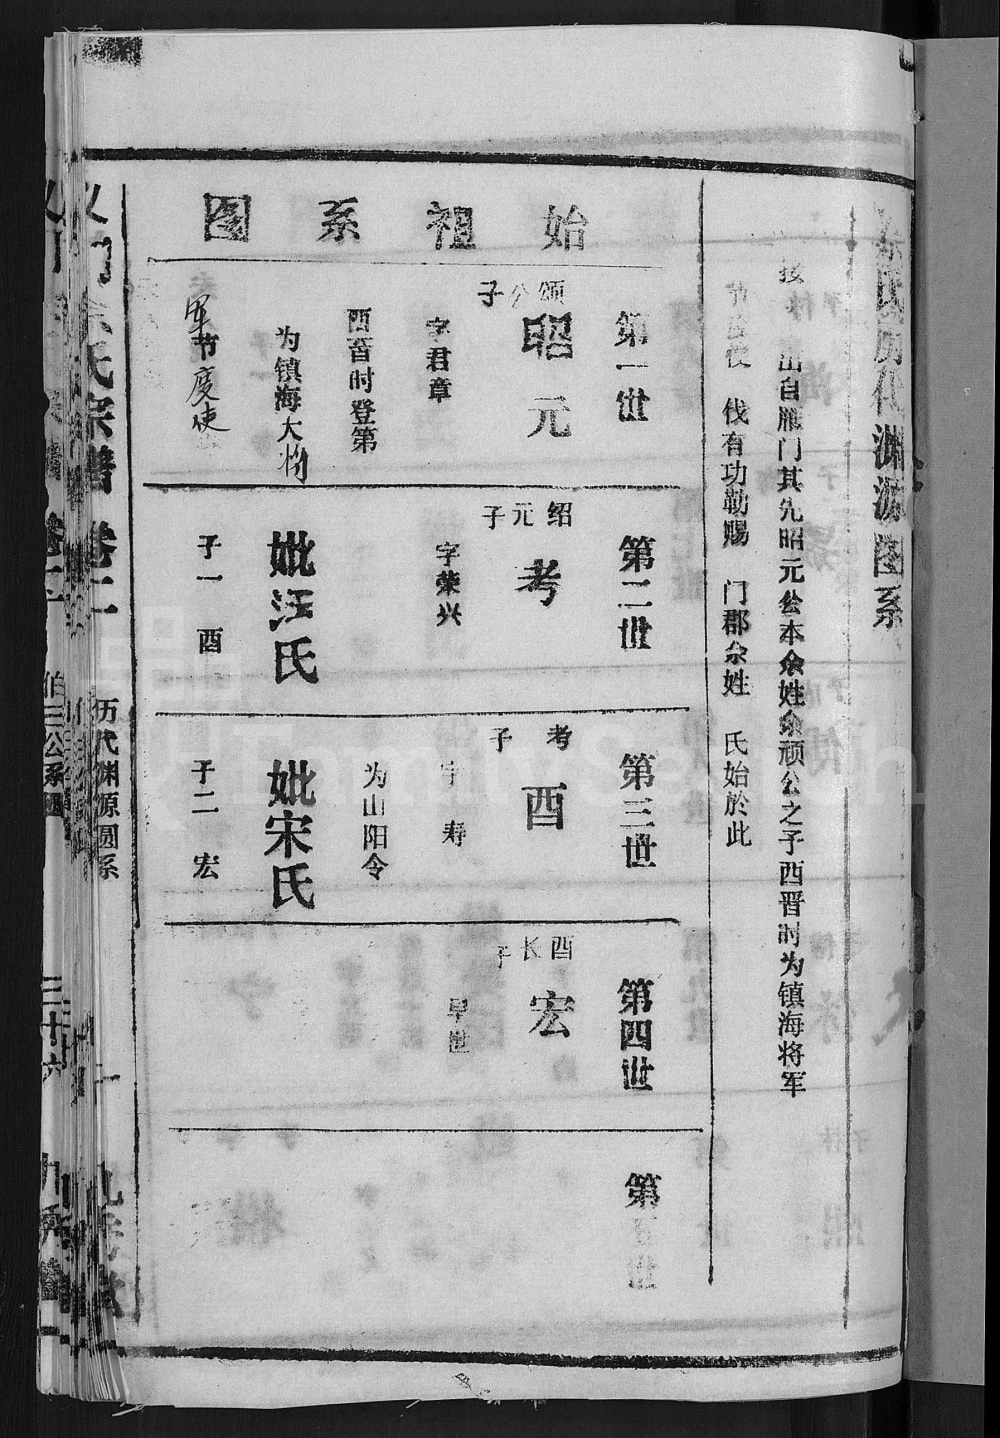 氏历代渊源图系
按 出自雁门其先昭元公本余姓余顽公之子西晋时为镇海将军
节度使 伐有功勒赐 门郡余姓 氏始於此
始祖系图
第一世
颂公子
昭元
字君章
西晋时登第
为镇海大将
军节度使
第二世
绍元子
考
字荣兴
妣汪氏
子一 酉
第三世
考子
酉
字寿
为山阳令
妣宋氏
子二 宏
第四世
酉长子
宏
早世
第五世
氏宗谱 卷二
历代渊源图系
伯三公系图
三十六